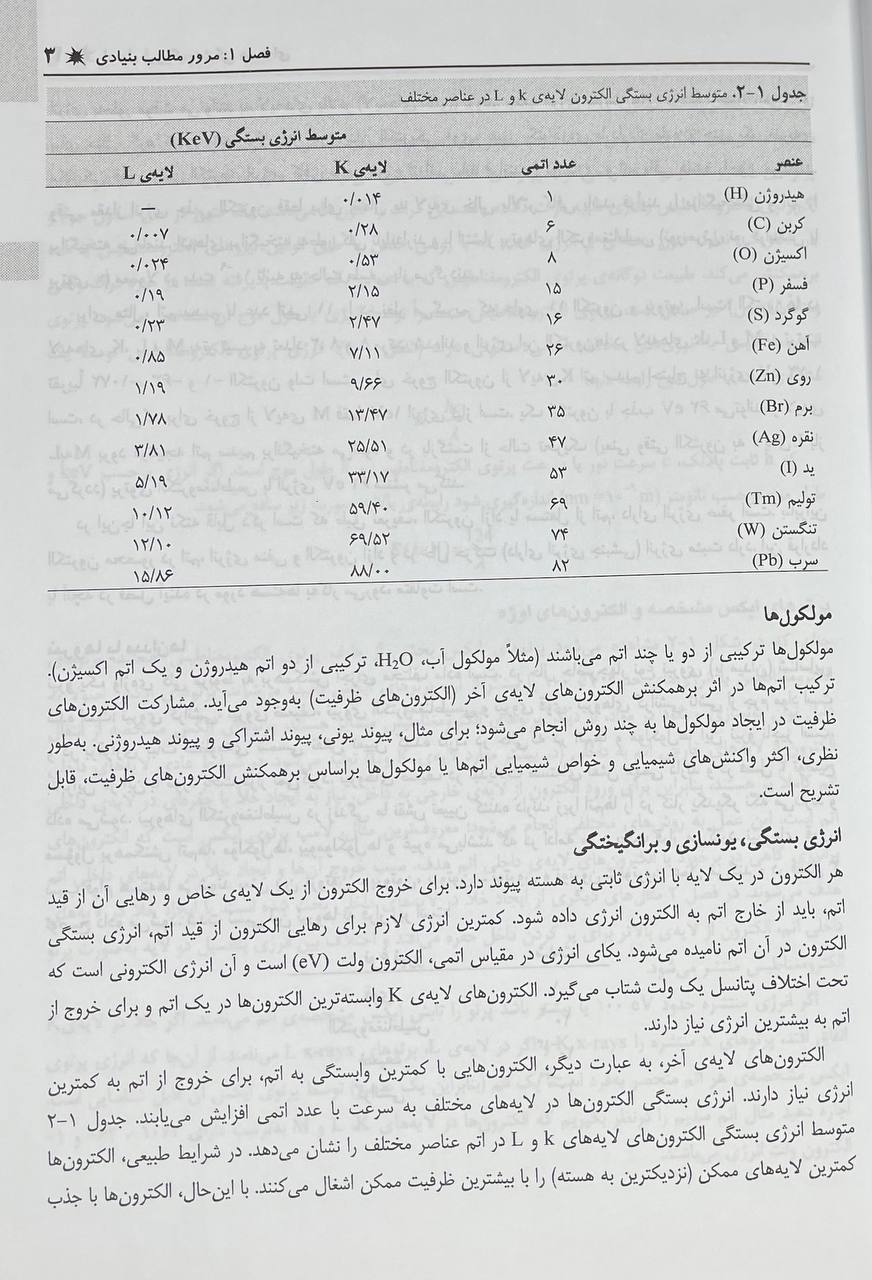 فصل ۱: مرور مطالب بنیادی ۳
جدول ۱-۲. متوسط انرژی بستگی الکترون لایه‌ی k و L در عناصر مختلف
متوسط انرژی بستگی (KeV)
عنصر عدد اتمی لایه‌ی K لایه‌ی L
هیدروژن (H) ۱ ۰/۰۱۴ —
کربن (C) ۶ ۰/۲۸ ۰/۰۰۷
اکسیژن (O) ۸ ۰/۵۳ ۰/۰۲۴
فسفر (P) ۱۵ ۲/۱۵ ۰/۱۹
گوگرد (S) ۱۶ ۲/۴۷ ۰/۲۳
آهن (Fe) ۲۶ ۷/۱۱ ۰/۸۵
روی (Zn) ۳۰ ۹/۶۶ ۱/۱۹
برم (Br) ۳۵ ۱۳/۴۷ ۱/۷۸
نقره (Ag) ۴۷ ۲۵/۵۱ ۳/۸۱
ید (I) ۵۳ ۳۳/۱۷ ۵/۱۹
تولیم (Tm) ۶۹ ۵۹/۴۰ ۱۰/۱۲
تنگستن (W) ۷۴ ۶۹/۵۲ ۱۲/۱۰
سرب (Pb) ۸۲ ۸۸/۰۰ ۱۵/۸۶
مولکول‌ها
مولکول‌ها ترکیبی از دو یا چند اتم می‌باشند (مثلاً مولکول آب، H₂O، ترکیبی از دو اتم هیدروژن و یک اتم اکسیژن).
ترکیب اتم‌ها در اثر برهمکنش الکترون‌های لایه‌ی آخر (الکترون‌های ظرفیت) به‌وجود می‌آید. مشارکت الکترون‌های
ظرفیت در ایجاد مولکول‌ها به چند روش انجام می‌شود؛ برای مثال، پیوند یونی، پیوند اشتراکی و پیوند هیدروژنی. به‌طور
نظری، اکثر واکنش‌های شیمیایی و خواص شیمیایی اتم‌ها یا مولکول‌ها براساس برهمکنش الکترون‌های ظرفیت، قابل
تشریح است.
انرژی بستگی، یونسازی و برانگیختگی
هر الکترون در یک لایه با انرژی ثابتی به هسته پیوند دارد. برای خروج الکترون از یک لایه‌ی خاص و رهایی آن از قید
اتم، باید از خارج اتم به الکترون انرژی داده شود. کمترین انرژی لازم برای رهایی الکترون از قید اتم، انرژی بستگی
الکترون در آن اتم نامیده می‌شود. یکای انرژی در مقیاس اتمی، الکترون ولت (eV) است و آن انرژی الکترونی است که
تحت اختلاف پتانسل یک ولت شتاب می‌گیرد. الکترون‌های لایه‌ی K وابسته‌ترین الکترون‌ها در یک اتم و برای خروج از
اتم به بیشترین انرژی نیاز دارند.
الکترون‌های لایه‌ی آخر، به عبارت دیگر، الکترون‌هایی با کمترین وابستگی به اتم، برای خروج از اتم به کمترین
انرژی نیاز دارند. انرژی بستگی الکترون‌ها در لایه‌های مختلف به سرعت با عدد اتمی افزایش می‌یابند. جدول ۱-۲
متوسط انرژی بستگی الکترون‌های لایه‌های k و L در اتم عناصر مختلف را نشان می‌دهد. در شرایط طبیعی، الکترون‌ها
کمترین لایه‌های ممکن (نزدیکترین به هسته) را با بیشترین ظرفیت ممکن اشغال می‌کنند. با این‌حال، الکترون‌ها با جذب